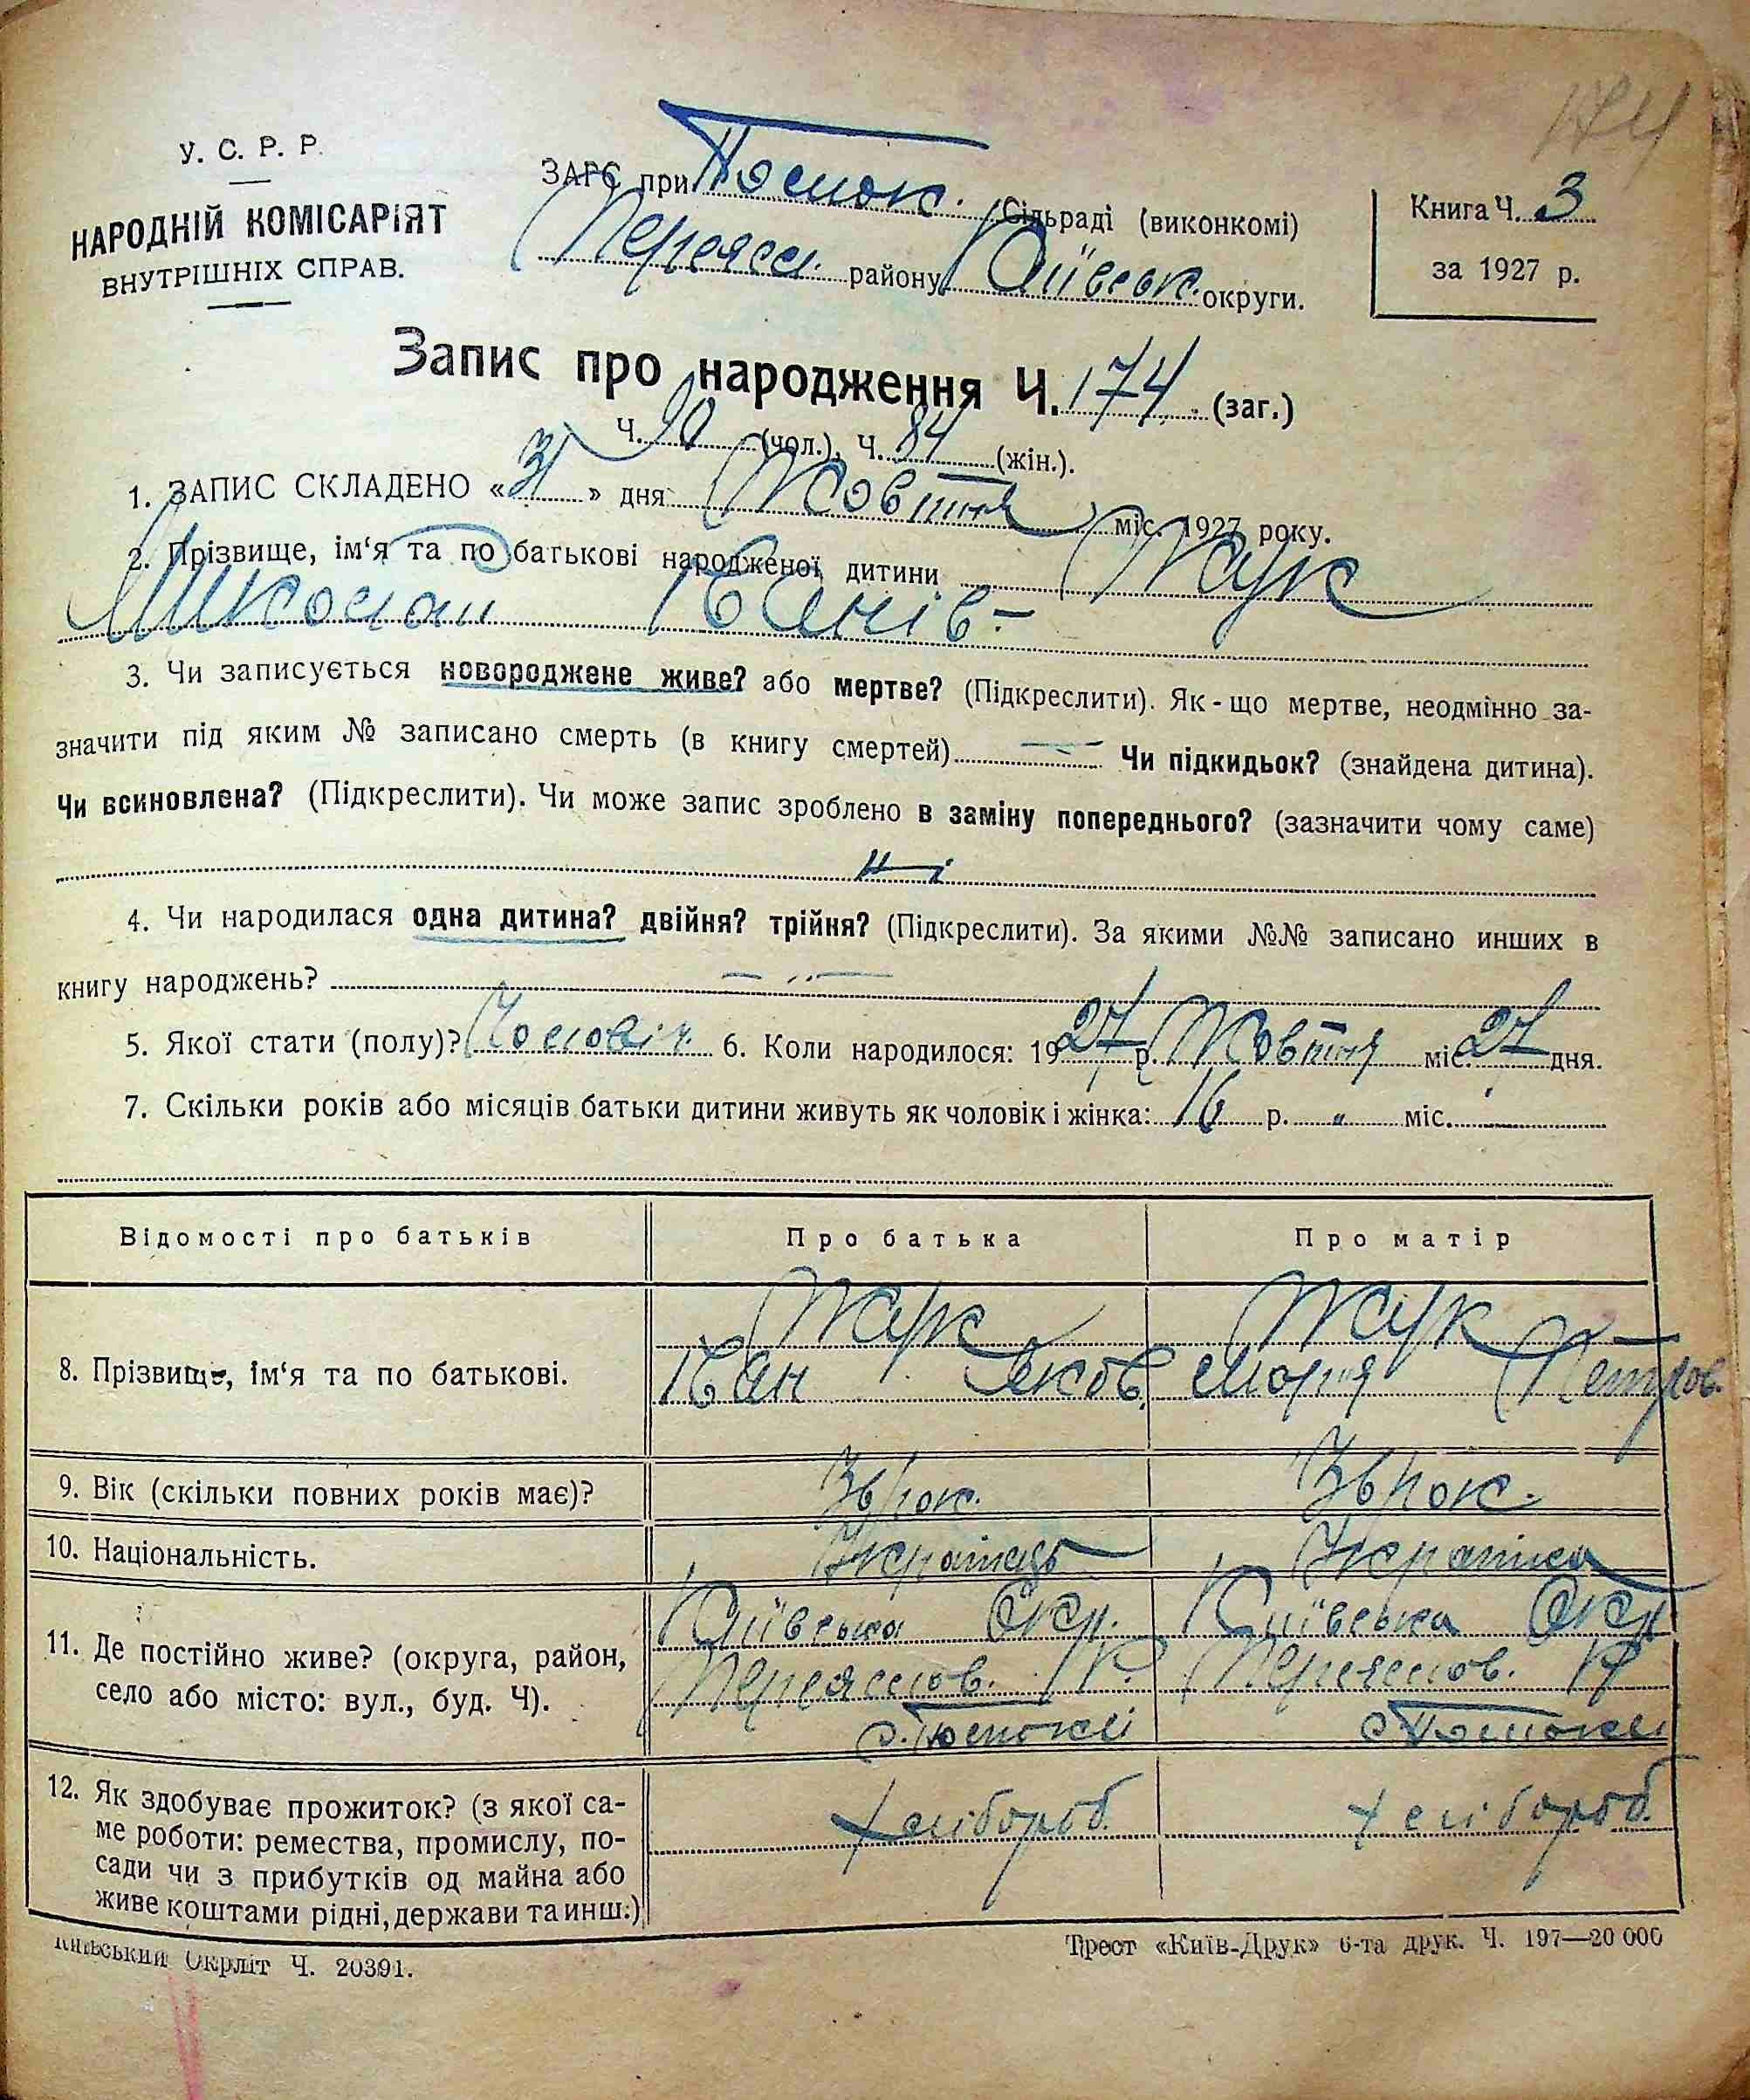 174
У. С. Р. Р.
НАРОДНІЙ КОМІСАРІЯТ
ВНУТРІШНІХ СПРАВ.
ЗАГС при Сільраді (виконкомі)
Переясл. району Київськ. округи.
Книга Ч. 3
за 1927 р.
Запис про народження Ч. 174 (заг.)
Ч. 90 (чол.), Ч. 84 (жін.).
1. ЗАПИС СКЛАДЕНО «31» дня Жовтня міс. 1927 року.
2. Прізвище, ім'я та по батькові народженої дитини Жук
Микола Іванів-
3. Чи записується новороджене живе? або мертве? (Підкреслити). Як-що мертве, неодмінно за-
значити під яким № записано смерть (в книгу смертей) — Чи підкидьок? (знайдена дитина).
Чи всиновлена? (Підкреслити). Чи може запис зроблено в заміну попереднього? (зазначити чому саме)
Ні
4. Чи народилася одна дитина? двійня? трійня? (Підкреслити). За якими №№ записано инших в
книгу народжень? — „ —
5. Якої стати (полу)? Чоловіч. 6. Коли народилося: 1927 р. Жовтня міс. 27 дня.
7. Скільки років або місяців батьки дитини живуть як чоловік і жінка: 16 р. „ міс.
Відомості про батьків Про батька Про матір
8. Прізвище, ім'я та по батькові.
Жук Жук
Іван Яков. Марія Петров.
9. Вік (скільки повних років має)? 36 рок. 36 рок.
10. Національність. Українець Українка
11. Де постійно живе? (округа, район,
село або місто: вул., буд. Ч).
Київська Окр. Київська Окр
Переяслов. Р. Переяслов. Р
12. Як здобуває прожиток? (з якої са-
ме роботи: ремества, промислу, по-
сади чи з прибутків од майна або
живе коштами рідні, держави та инш.)
хлібороб. хлібороб.
Київський Окрліт Ч. 20391.
Трест «Київ-Друк» 6-та друк. Ч. 197—20 000